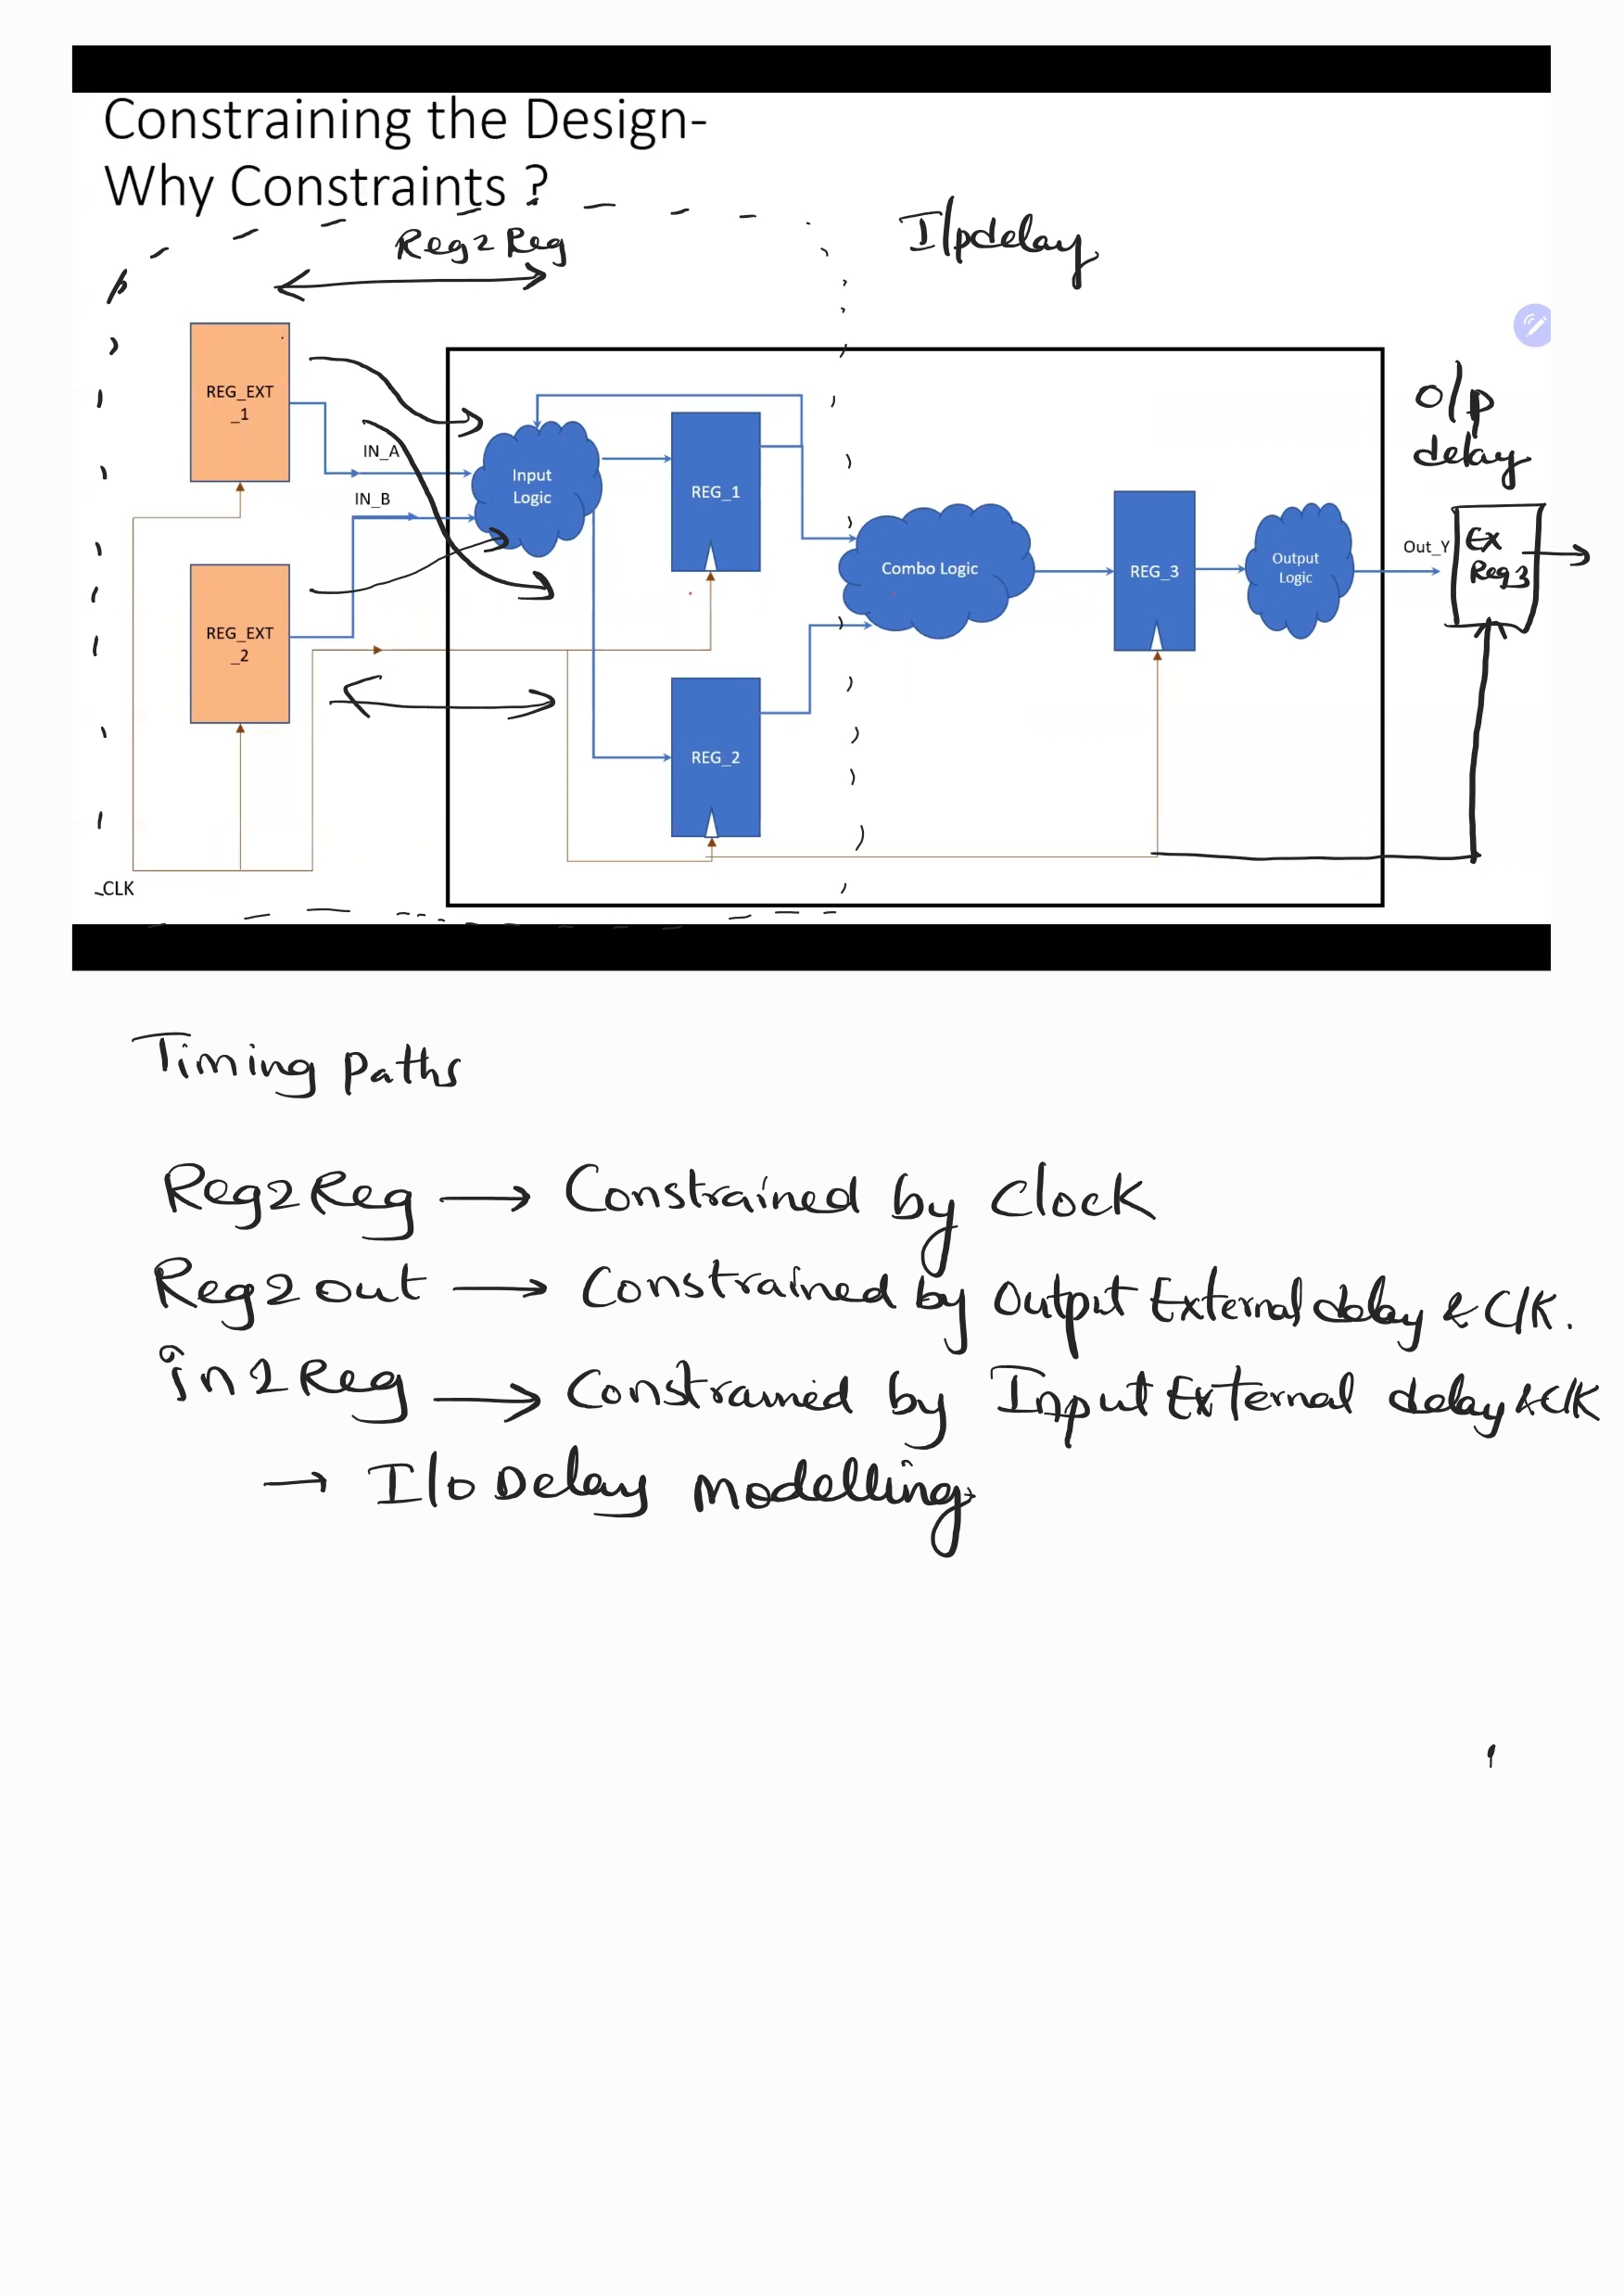 Constraining the Design-
Why Constraints ?
Reg2Reg
I/pdelay
REG_EXT
_1
IN_A
IN_B
Input
Logic
REG_1
o/p
delay
Combo Logic
REG_3
Output
Logic
Out_Y
Ex
Reg3
REG_EXT
_2
REG_2
CLK
Timing Paths
Reg2Reg → Constrained by Clock
Reg2out → Constrained by Output External delay & Clk.
in2Reg → Constrained by Input External delay & Clk
→ I/o Delay Modelling